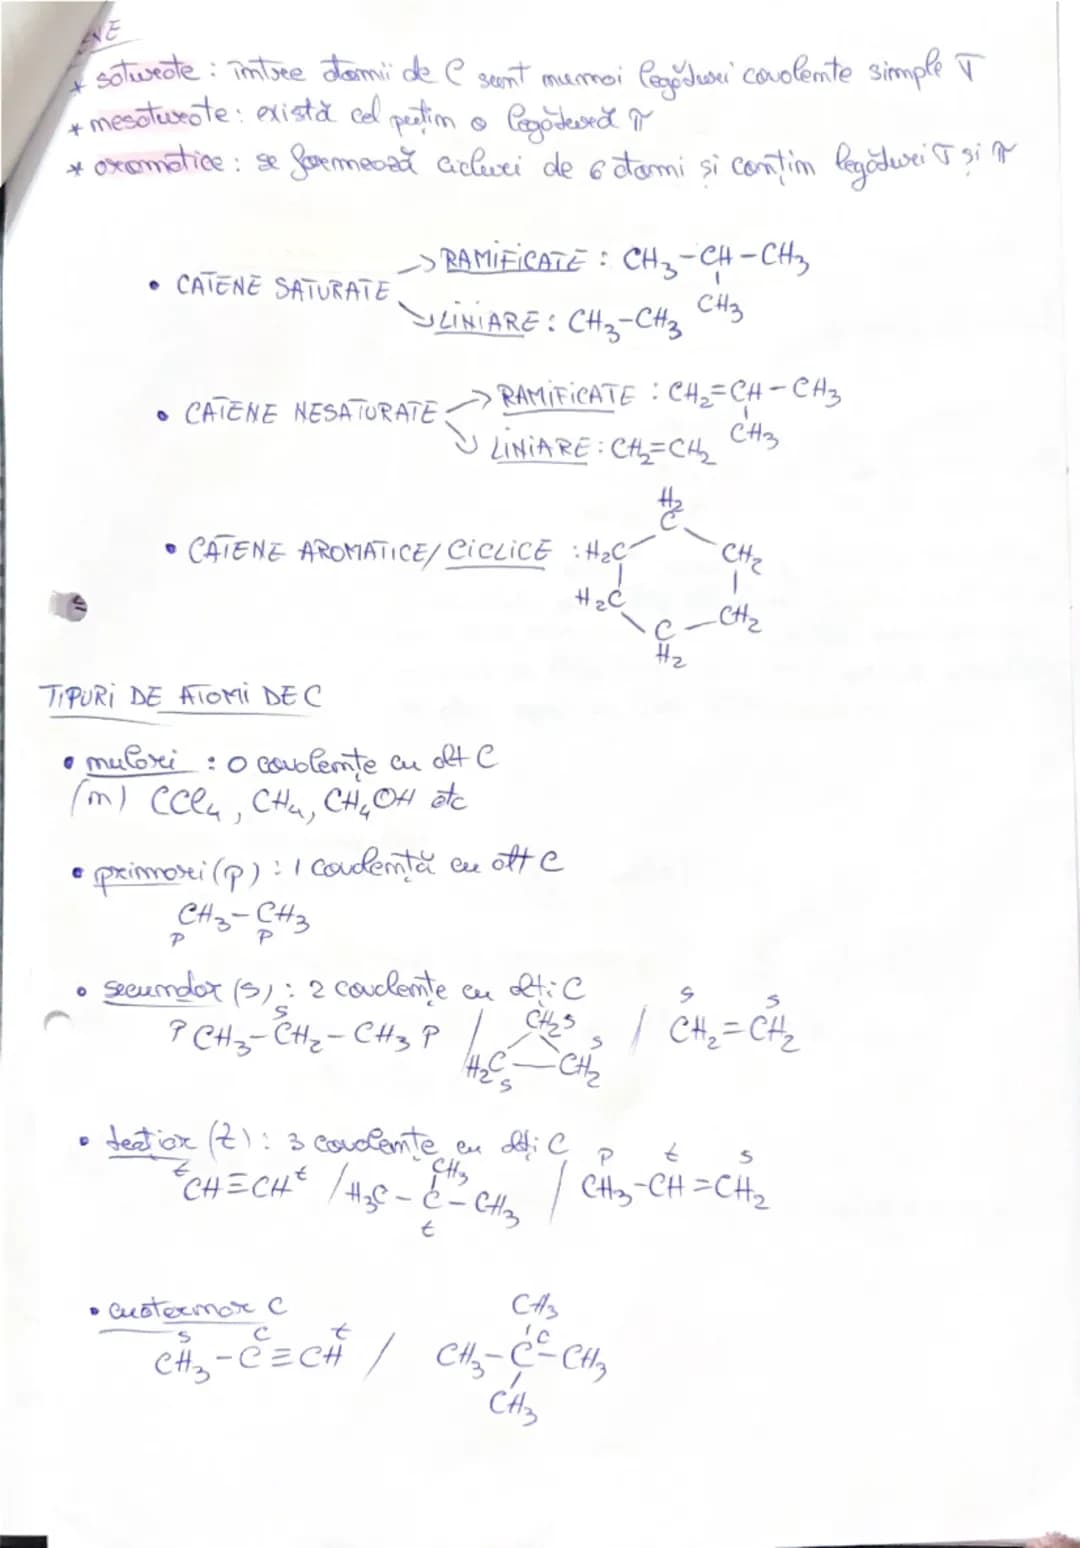 ENE
* saturate : între atomii de C sunt numai legături covalente simple σ
* nesaturate : există cel puțin o legătură π
* aromatice : se formează cicluri de 6 atomi și conțin legături σ și π
• CATENE SATURATE
→ RAMIFICATE : CH3-CH-CH3
CH3
↘ LINIARE : CH3-CH3
• CATENE NESATURATE
→ RAMIFICATE : CH2=CH-CH3
CH3
↘ LINIARE : CH2=CH2
• CATENE AROMATICE/CICLICE :
H2
C
H2C CH2
H2C CH2
C
H2
TIPURI DE ATOMI DE C
• nulari : 0 covalențe cu alt C
(n) CCl4, CH4, CH4OH etc
• primari (p) : 1 covalență cu alt C
CH3-CH3
p p
• secundar (s) : 2 covalențe cu alți C
s CH2 s s s
P CH3-CH2-CH3 P / H2C-CH2 / CH2=CH2
s s
• terțiar (t) : 3 covalențe cu alți C
t t CH3 p t s
CH≡CH / H3C-C-CH3 / CH3-CH=CH2
t
• cuaternar C
s c t CH3
CH3-C≡CH / CH3-C-CH3
c
CH3